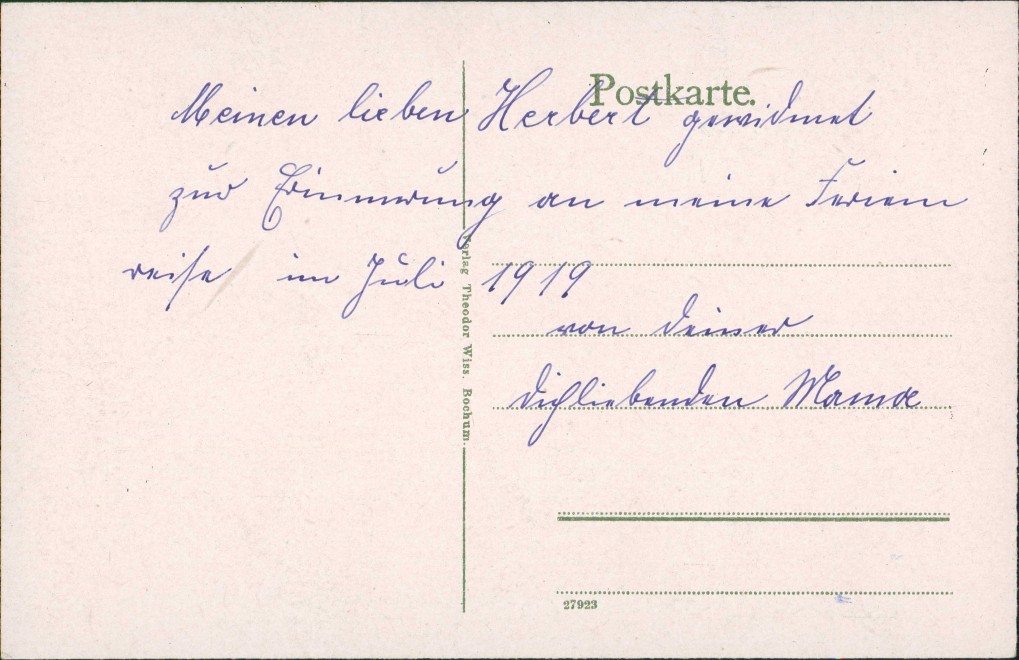 Postkarte.
Meinen lieben Herbert gewidmet
zur Erinnerung an meine Ferien
reise im Juli 1919
von deiner
dichliebenden Mama
Verlag Theodor Wiss. Bochum.
27923